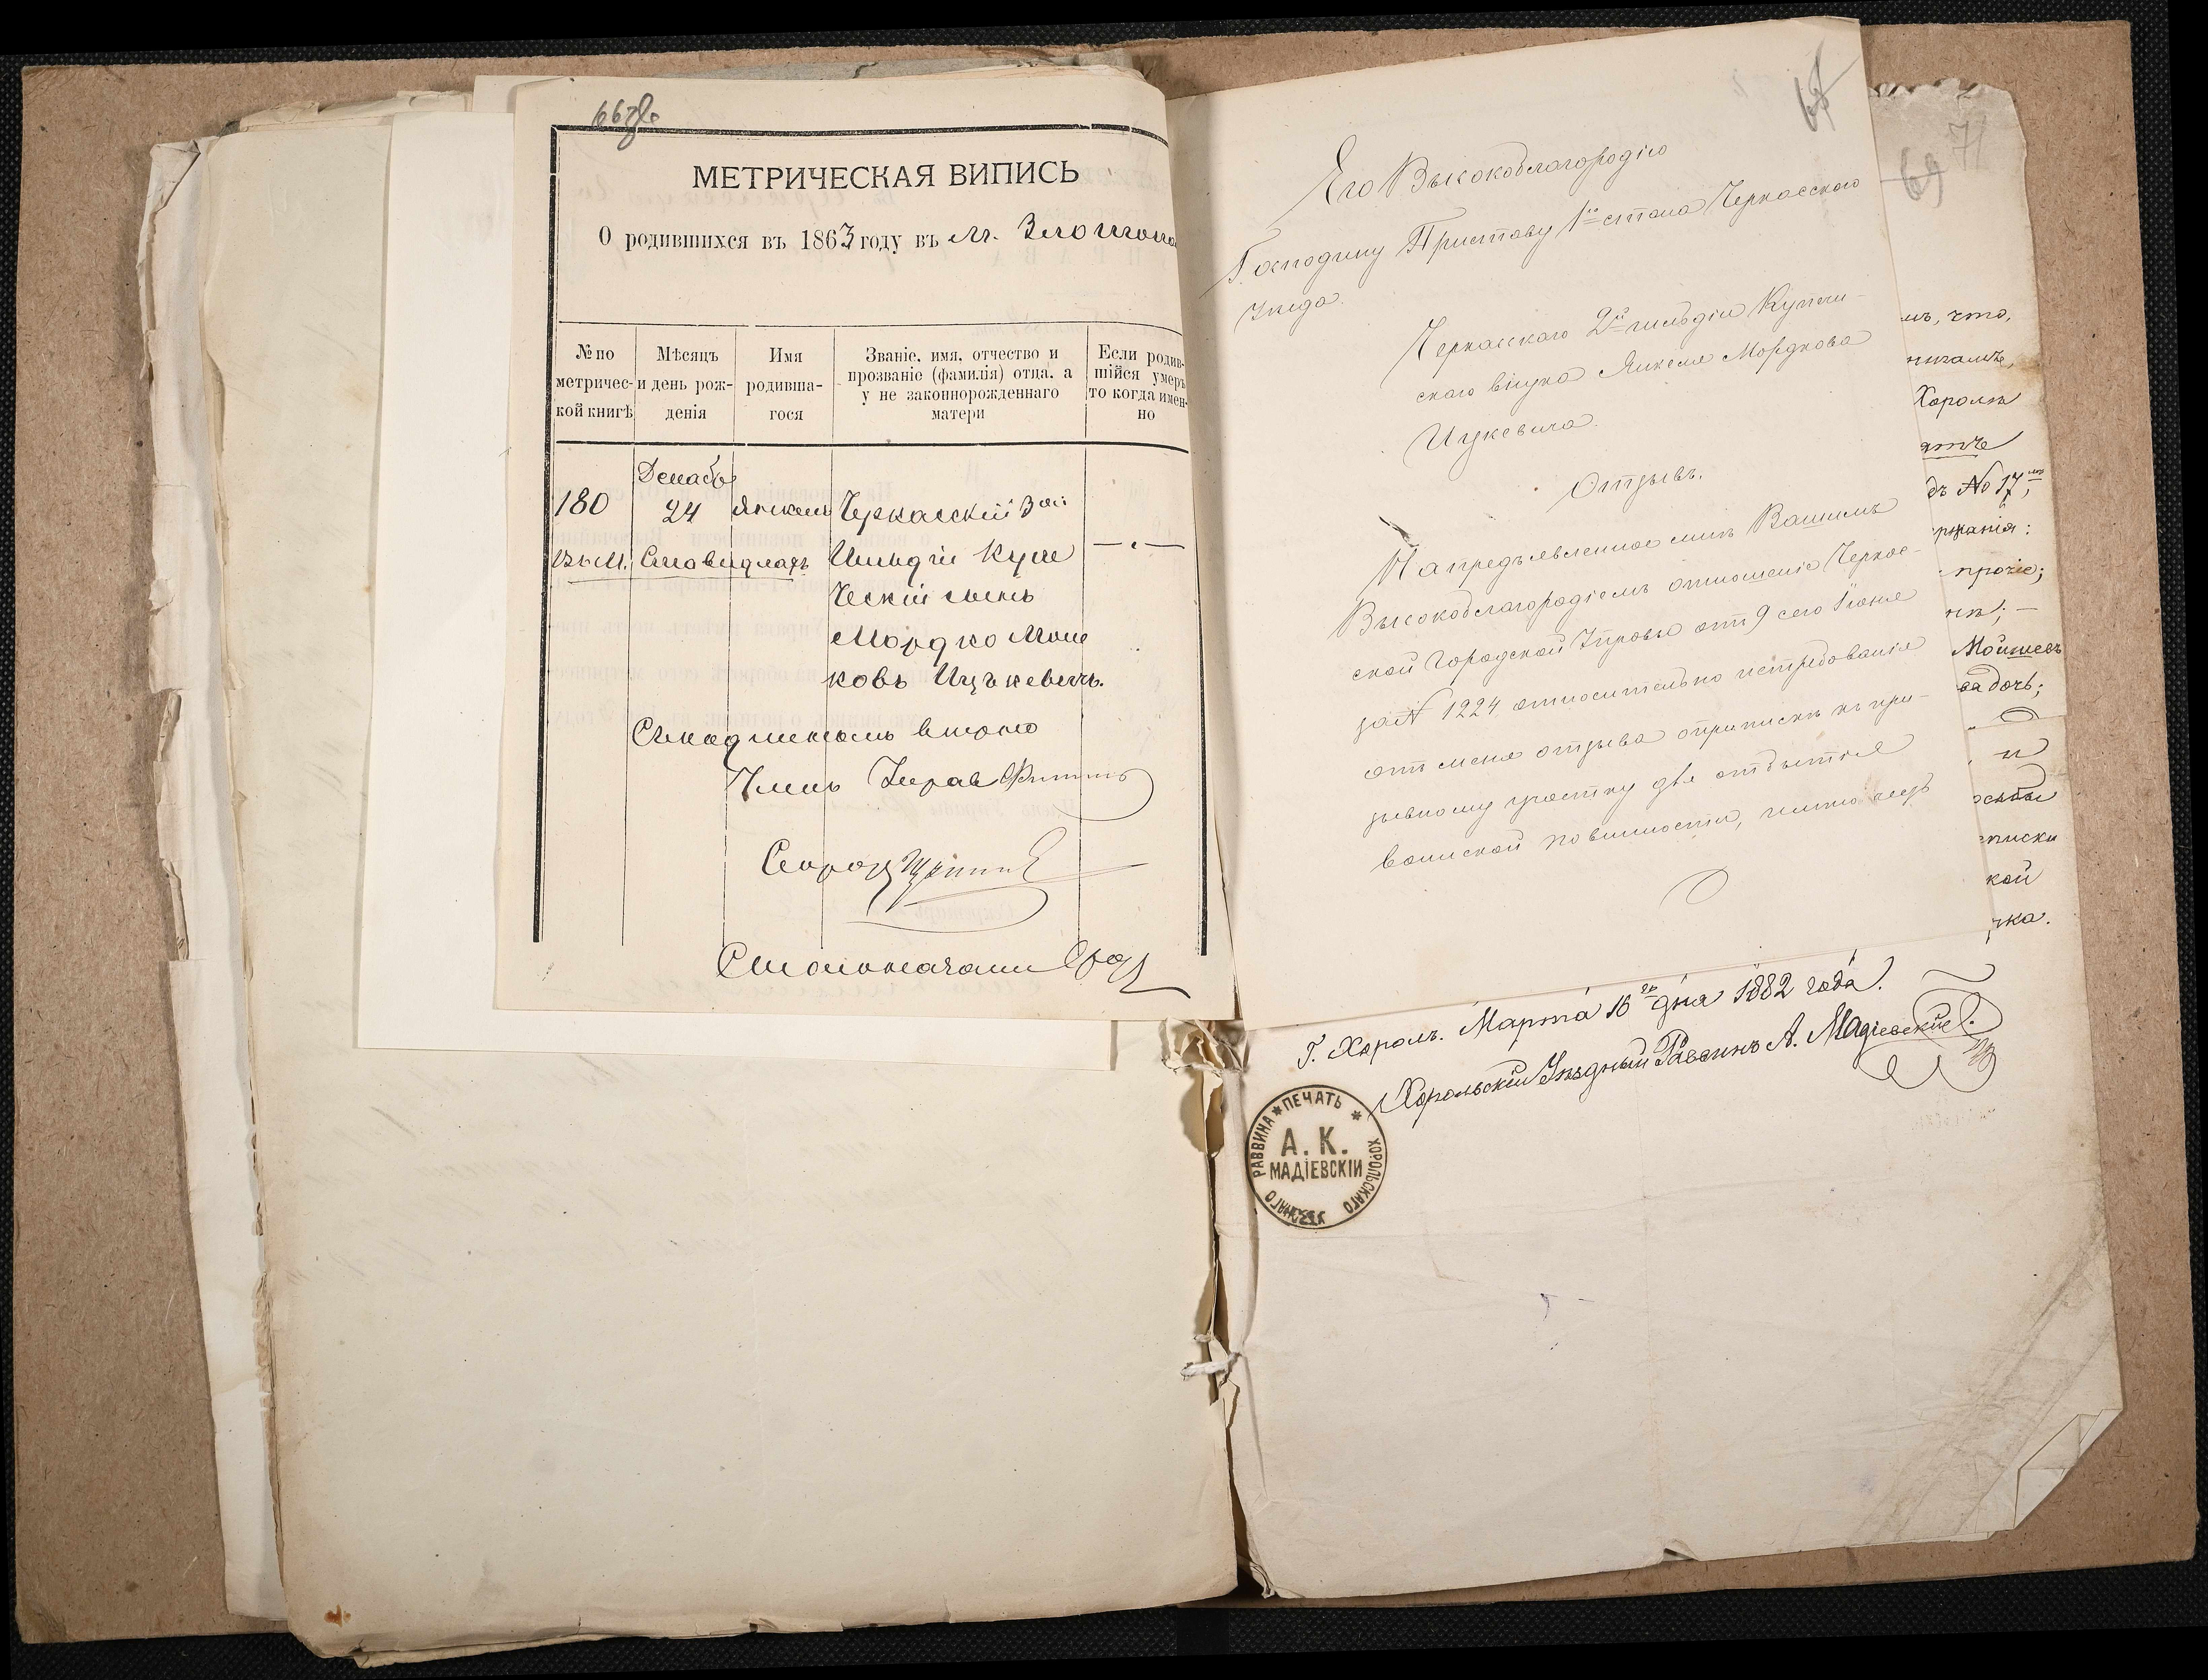 66 об
МЕТРИЧЕСКАЯ ВИПИСЬ
О родившихся въ 1863 году въ м.
№ по метричес-кой книгѣ
Мѣсяцъ и день рож-денія
Имя родивша-гося
Званіе, имя, отчество и прозваніе (фамилія) отца, а у не законнорожденнаго матери
Если родив-шійся умеръ то когда имен-но
Декабр
180 24 Янкель Черкасскій 3ой
Гильдіи Купе
ческій сынъ
Мордко Мош
ковъ Ицъкевичъ.
Съ подлиннымъ вѣрно
Членъ Управ
Столоначали
67
Его Высокоблагородію
Господину Приставу 1го стана Черкасскаго
Уѣзда.
Черкасскаго 2й гильдіи Купече-
скаго внука Янкеля Мордкова
Ицкевича.
Отзывъ.
На предъявленное мнѣ Вашимъ
Высокоблагородіемъ отношеніе Черкас-
ской Городской Управы отъ 9 сего Іюня
за № 1224 относительно истребованія
отъ меня отзыва о припискѣ къ при-
зывному участку для отбытія
воинской повинности, имѣю честь
71
69
мъ, что,
Хоролѣ
дъ № 17,
ржанія:
прочіе;
Мойшевъ
ва дочь;
и
списки
кой
чка.
Г. Хоролъ. Марта 16го дня 1882 года.
Хорольскій Уѣздный Раввинъ А. Мадіевскій.
* ПЕЧАТЬ * ХОРОЛЬСКАГО УѢЗДНАГО РАВВИНА
А. К.
МАДІЕВСКІЙ